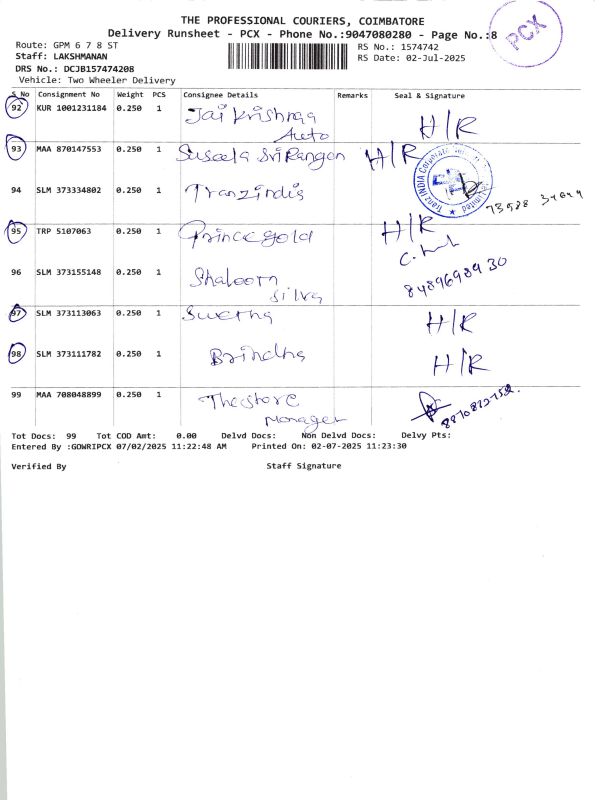 THE PROFESSIONAL COURIERS, COIMBATORE
Delivery Runsheet - PCX - Phone No.:9047080280 - Page No.:8
PCX
Route: GPM 6 7 8 ST
RS No.: 1574742
Staff: LAKSHMANAN
RS Date: 02-Jul-2025
DRS No.: DCJB157474208
Vehicle: Two Wheeler Delivery
S No Consignment No Weight PCS Consignee Details Remarks Seal & Signature
92 KUR 1001231184 0.250 1 Jai Krishnaa
Auto H/R
93 MAA 870147553 0.250 1 Suseela SriRangan H/R
94 SLM 373334802 0.250 1 Tranzindis
95 TRP 5107063 0.250 1 Princegold H/R
96 SLM 373155148 0.250 1 Shaloom
Silva 8489698930
97 SLM 373113063 0.250 1 Swetha H/R
98 SLM 373111782 0.250 1 Brindha H/R
99 MAA 708048899 0.250 1 The store
Manager
Tot Docs: 99 Tot COD Amt: 0.00 Delvd Docs: Non Delvd Docs: Delvy Pts:
Entered By :GOWRIPCX 07/02/2025 11:22:48 AM Printed On: 02-07-2025 11:23:30
Verified By Staff Signature